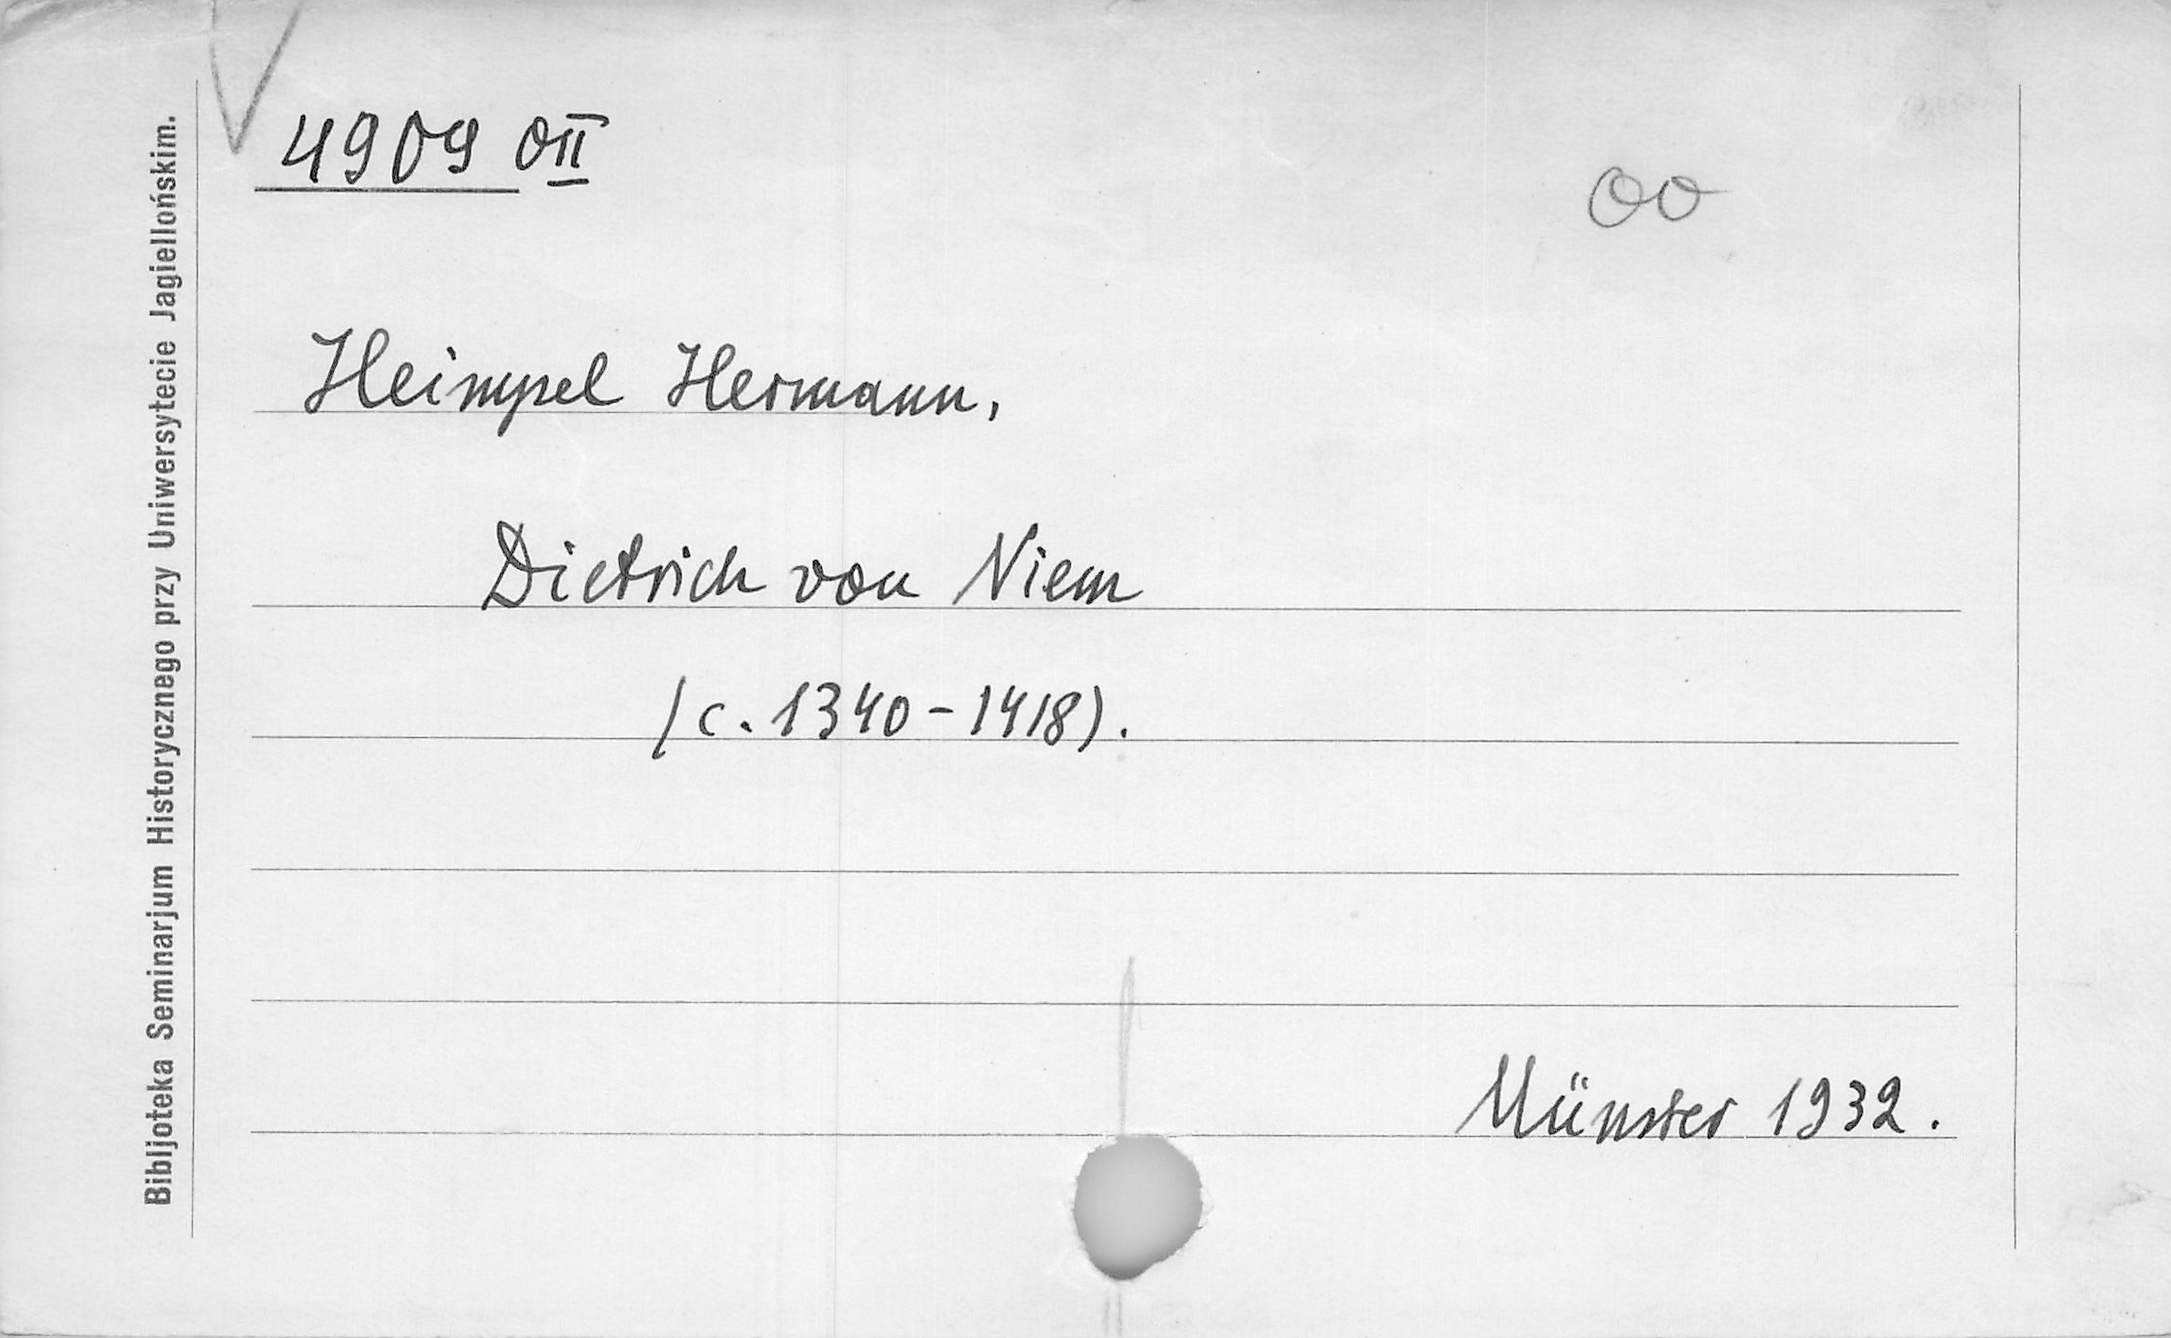 4909 OII
OO
Heimpel Hermann,
Dietrich von Niem
(c. 1340-1418).
Münster 1932.
Bibljoteka Seminarjum Historycznego przy Uniwersytecie Jagiellońskim.